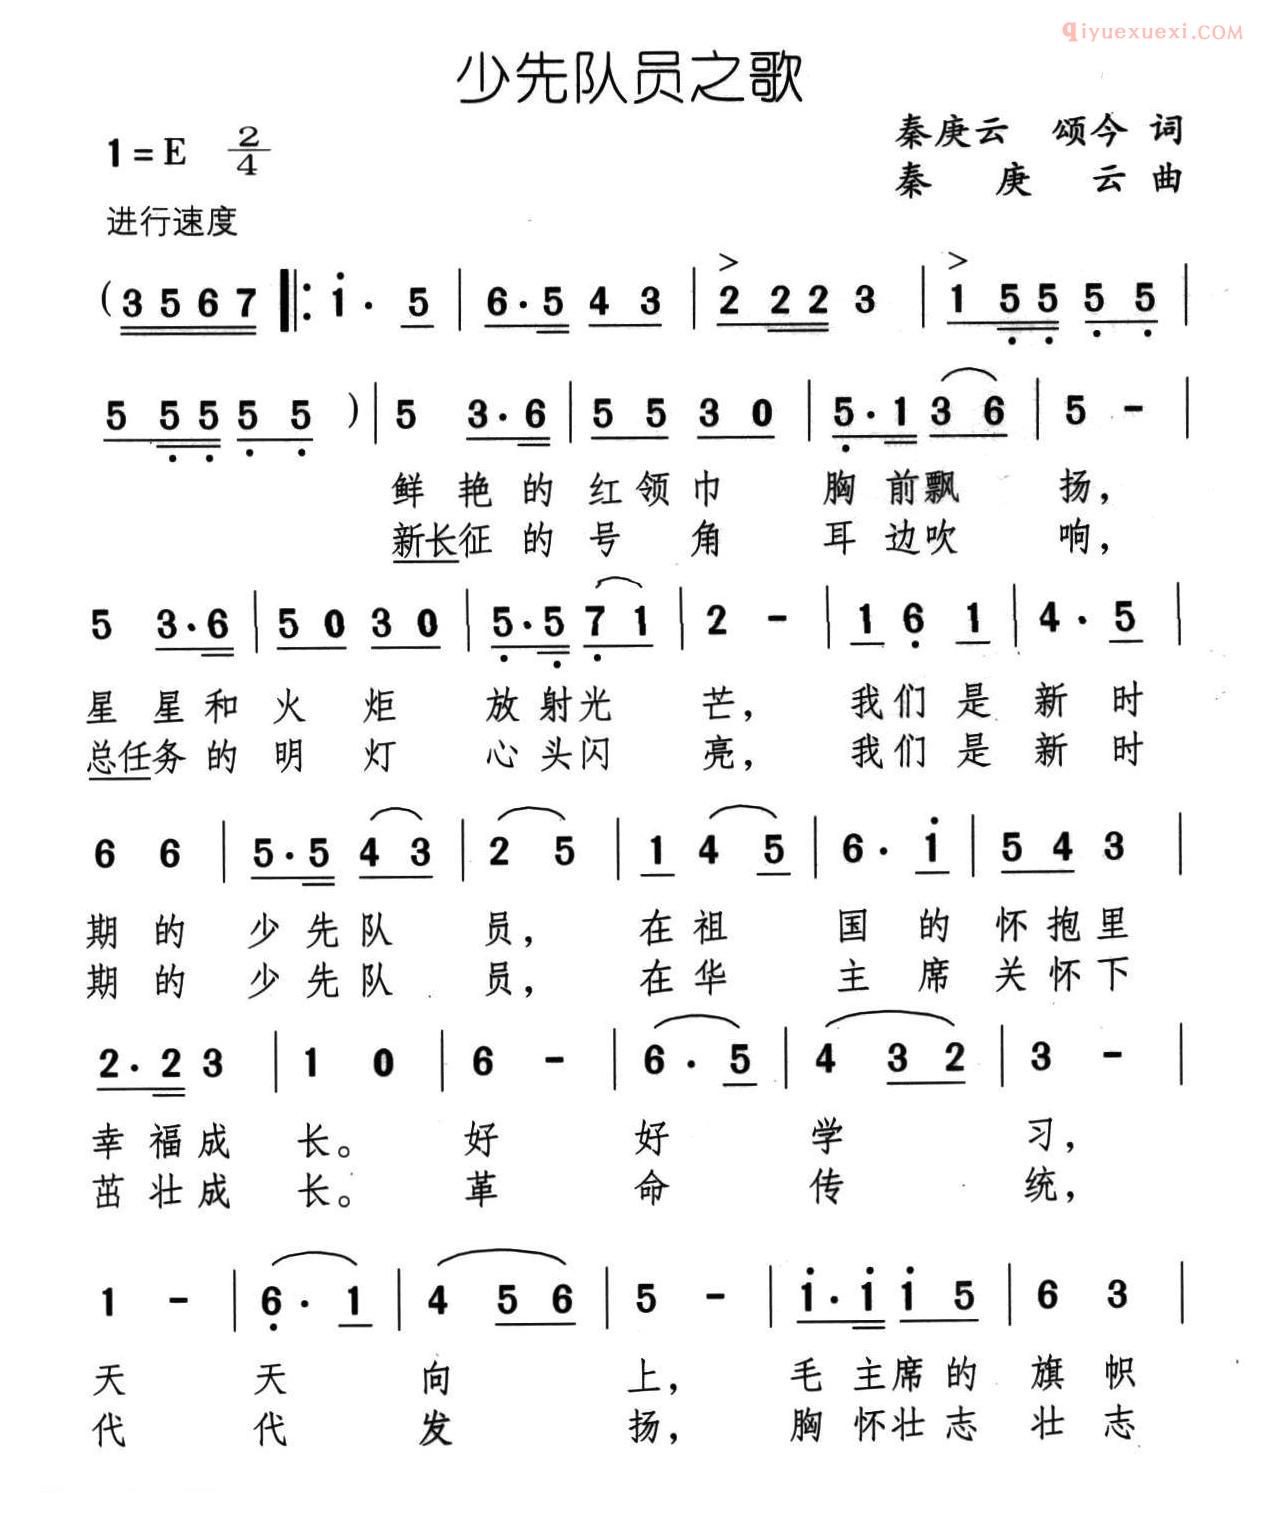 qiyuexuexi.COM
少先队员之歌
1=E 2/4
秦庚云 颂今 词
秦庚云 曲
进行速度
(3 5 6 7 ‖: i· 5 | 6·5 4 3 | 2 2 2 3 | 1 5 5 5 5 |
5 5 5 5 5 ) | 5 3·6 | 5 5 3 0 | 5·1 3 6 | 5 - |
鲜艳的红领巾 胸前飘扬，
新长征的号角 耳边吹响，
5 3·6 | 5 0 3 0 | 5·5 7 1 | 2 - | 1 6 1 | 4· 5 |
星星和火炬 放射光芒， 我们是新时
总任务的明灯 心头闪亮， 我们是新时
6 6 | 5·5 4 3 | 2 5 | 1 4 5 | 6· i | 5 4 3 |
期的少先队员， 在祖国的怀抱里
期的少先队员， 在华主席关怀下
2·2 3 | 1 0 | 6 - | 6· 5 | 4 3 2 | 3 - |
幸福成长。 好好学习，
茁壮成长。 革命传统，
1 - | 6· 1 | 4 5 6 | 5 - | i·i i 5 | 6 3 |
天天向上， 毛主席的旗帜
代代发扬， 胸怀壮志壮志